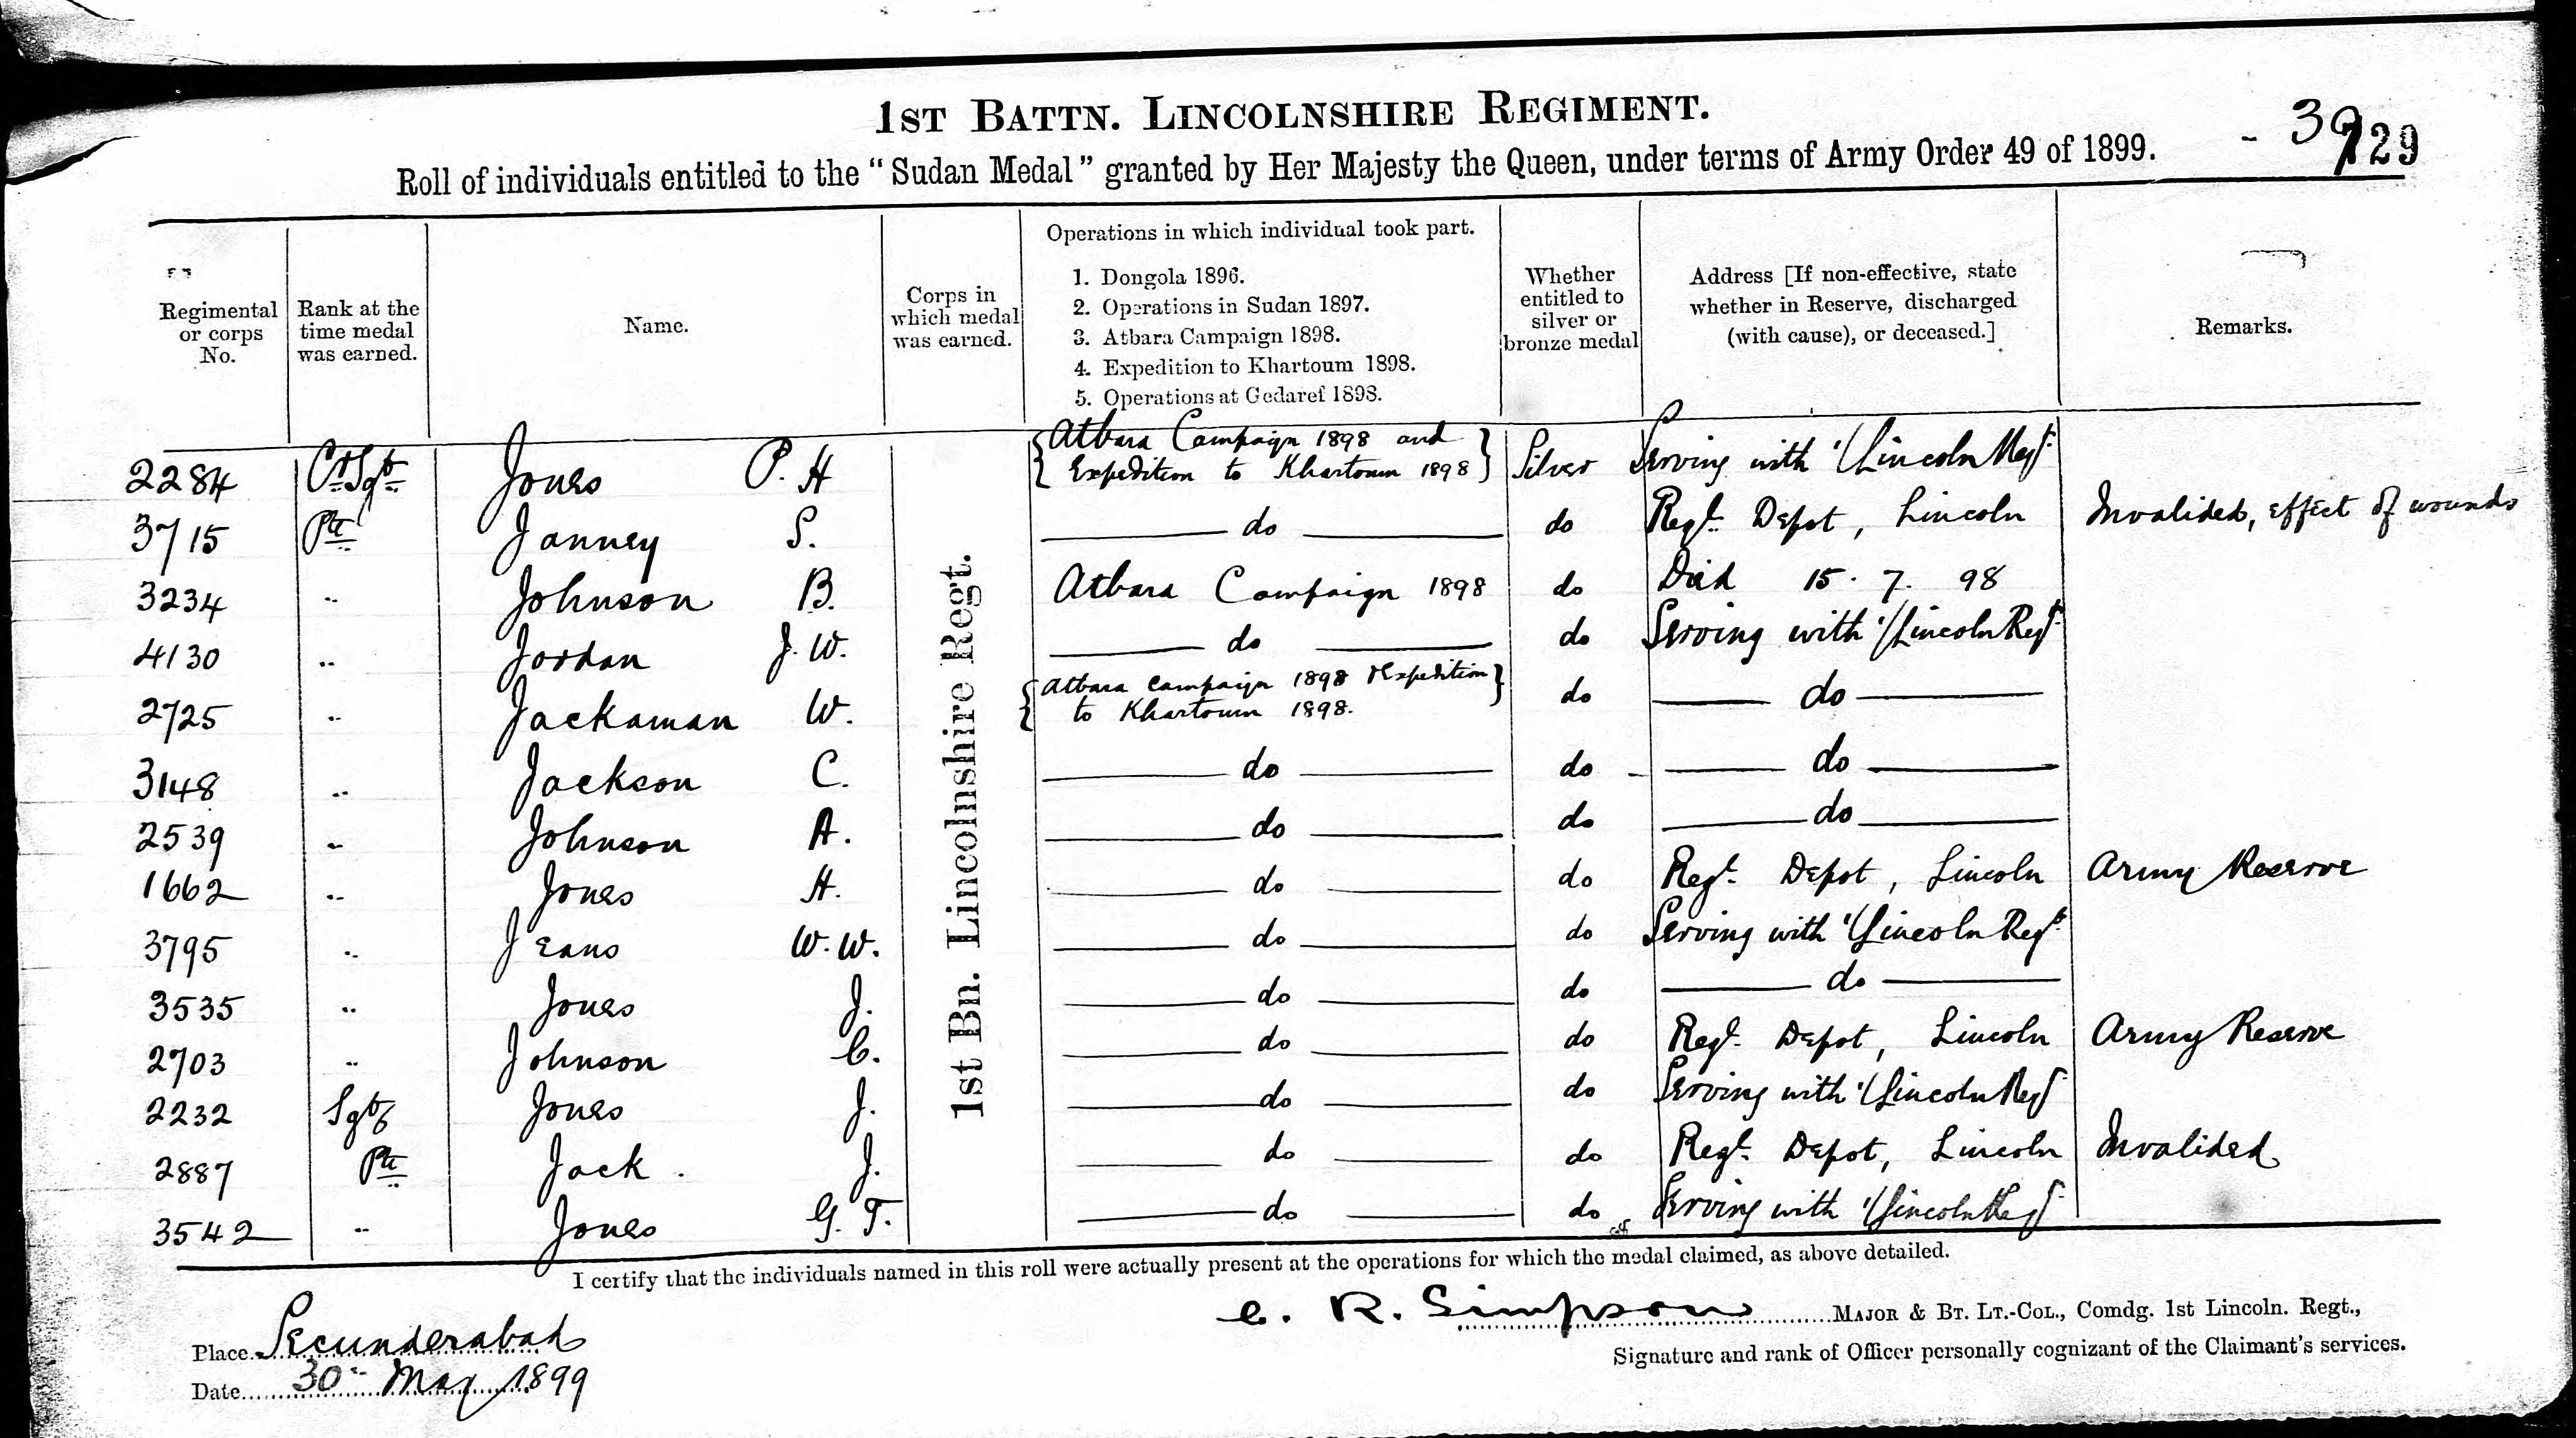 1ST BATTN. LINCOLNSHIRE REGIMENT.
- 39
129
Roll of individuals entitled to the "Sudan Medal" granted by Her Majesty the Queen, under terms of Army Order 49 of 1899.
Regimental or corps No.
Rank at the time medal was earned.
Name.
Corps in which medal was earned.
Operations in which individual took part.
1. Dongola 1896.
2. Operations in Sudan 1897.
3. Atbara Campaign 1898.
4. Expedition to Khartoum 1898.
5. Operations at Gedaref 1898.
Whether entitled to silver or bronze medal
Address [If non-effective, state whether in Reserve, discharged (with cause), or deceased.]
Remarks.
1st Bn. Lincolnshire Regt.
2284 Cr Sgt Jones P. H {Atbara Campaign 1898 and Expedition to Khartoum 1898} Silver Serving with 1/Lincoln Regt
3715 Pte Janney S. do do Regt. Depot, Lincoln Invalided, effect of wounds
3234 " Johnson B. Atbara Campaign 1898 do Died 15. 7. 98
4130 " Jordan J. W. do do Serving with 1/Lincoln Regt
2725 " Jackaman W. {Atbara Campaign 1898 & Expedition to Khartoum 1898.} do do
3148 " Jackson C. do do do
2539 " Johnson A. do do do
1662 " Jones H. do do Regt. Depot, Lincoln Army Reserve
3795 " Jeans W. W. do do Serving with 1/Lincoln Regt
3535 " Jones J. do do do
2703 " Johnson C. do do Regt. Depot, Lincoln Army Reserve
2232 Sgt Jones J. do do Serving with 1/Lincoln Regt
2887 Pte Jack. J. do do Regt. Depot, Lincoln Invalided
3542 " Jones G. T. do do Serving with 1/Lincoln Regt
I certify that the individuals named in this roll were actually present at the operations for which the medal claimed, as above detailed.
C. R. Simpson MAJOR & BT. LT.-COL., Comdg. 1st Lincoln. Regt.,
Signature and rank of Officer personally cognizant of the Claimant's services.
Place Secunderabad
Date 30th May 1899